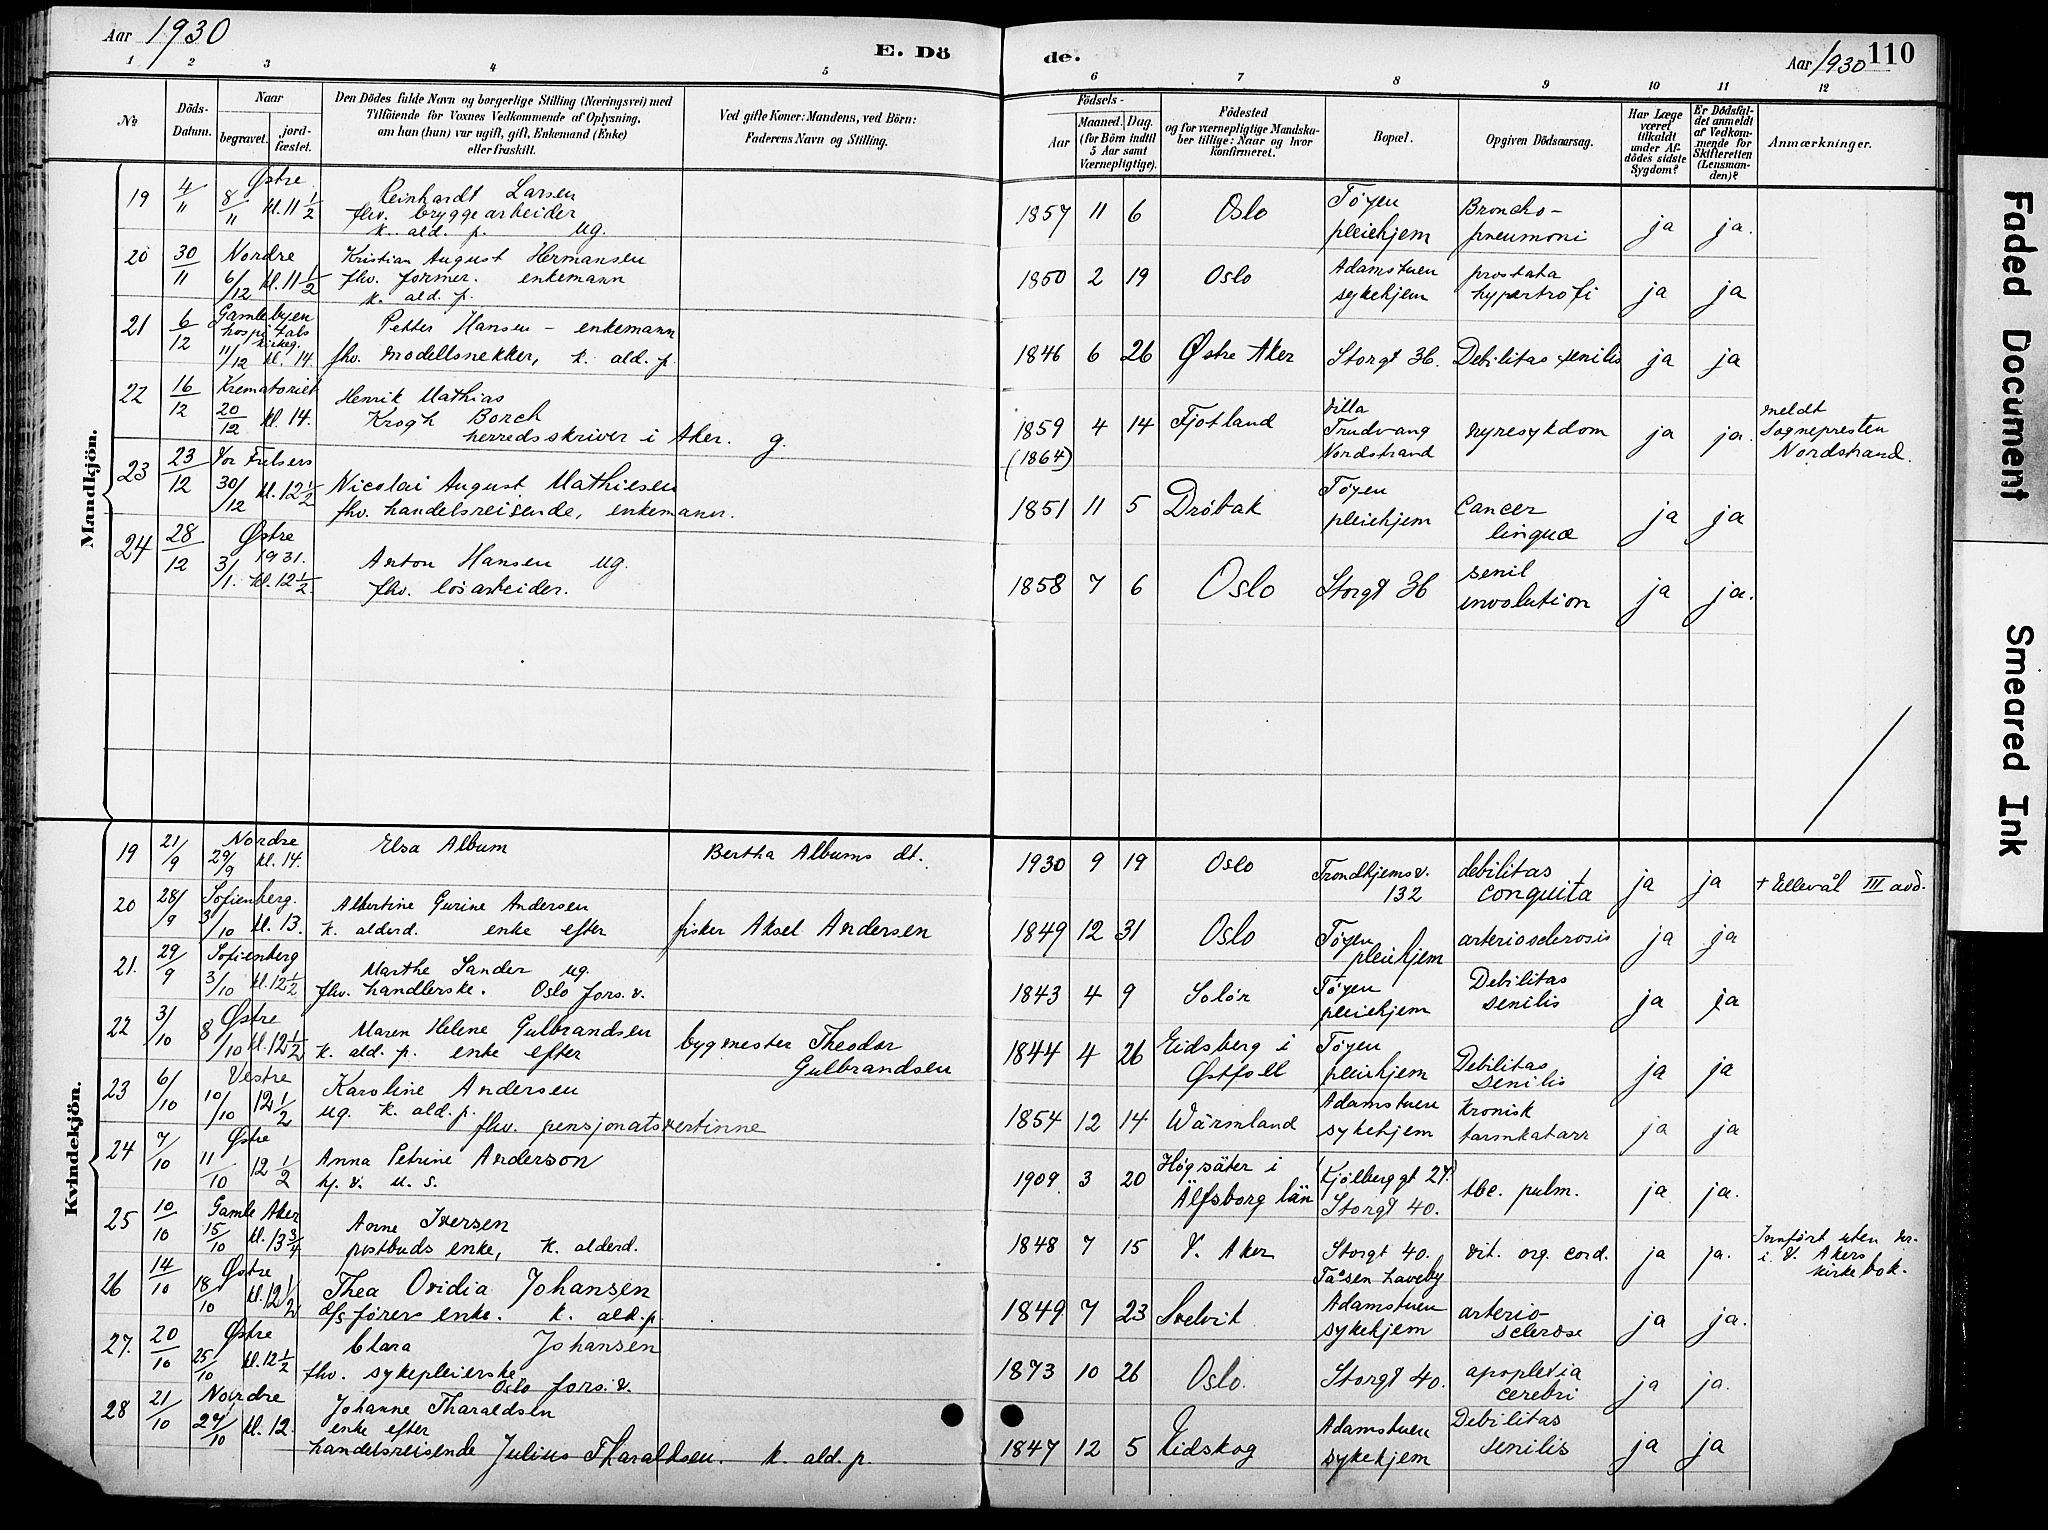 Aar 1930
E. Dö
de.
Aar 1930 110
1 2 3 4 5 6 7 8 9 10 11 12
№
Döds-
Datum.
Naar
begravet.
jord-
fæstet.
Den Dödes fulde Navn og borgerlige Stilling (Næringsvei) med
Tilföiende for Voxnes Vedkommende af Oplysning,
om han (hun) var ugift, gift, Enkemand (Enke)
eller fraskilt.
Ved gifte Koner: Mandens, ved Börn:
Faderens Navn og Stilling.
Födsels-
Aar
Maaned. Dag.
(for Börn indtil
5 Aar samt
Værnepligtige).
Födested
og for værnepligtige Mandska-
ber tillige: Naar og hvor
konfirmeret.
Bopæl.
Opgiven Dödsaarsag.
Har Læge
været
tilkaldt
under Af-
dödes sidste
Sygdom?
Er Dödsfal-
det anmeldt
af Vedkom-
mende for
Skifteretten
(Lensman-
den)?
Anmærkninger.
Mandkjön.
19 4/11 Østre 8/11 kl. 11 1/2
Reinhardt Larsen
fhv. bryggearbeider
k. ald. p. ug.
1857 11 6 Oslo
Tøyen
pleiehjem
Broncho-
pneumoni
ja ja.
20 30/11 Nordre 6/12 kl. 11 1/2
Kristian August Hermansen
fhv. former. enkemann
k. ald. p.
1850 2 19 Oslo
Adamstuen
sykehjem
prostata
hypertrofi
ja ja
21 6/12 Gamlebyen
hospitals
kirkeg.
11/12 kl. 14.
Petter Hansen - enkemann
fhv. modellsnekker, k. ald. p.
1846 6 26 Østre Aker Storgt 36. Debilitas senilis ja ja
22 16/12 Krematoriet
20/12 kl. 14.
Henrik Mathias
Krogh Borch
herredsskriver i Aker. g.
1859 4 14 Fjotland
(1864)
Villa
Trudvang
Nordstrand
nyresykdom ja ja.
meldt
Sognepresten
Nordstrand.
23 23/12 Vor Frelsers
30/12 kl. 12 1/2
Nicolai August Mathiesen
fhv. handelsreisende, enkemann.
1851 11 5 Drøbak
Tøyen
pleiehjem
Cancer
linguæ
ja ja
24 28/12 Østre
1931.
3/1. kl. 12 1/2.
Anton Hansen ug.
fhv. løsarbeider.
1858 7 6 Oslo Storgt 36
senil
involution
ja ja.
Kvindekjön.
19 21/9 Nordre
29/9 kl. 14.
Elsa Album
Bertha Albums dt.
1930 9 19 Oslo
Trondhjemsv.
132
debilitas
conquita
ja ja + Ullevål III avd.
20 28/9 Sofienberg.
3/10 kl. 13.
Albertine Gurine Andersen
k. alderd. enke efter
fisker Aksel Andersen
1849 12 31 Oslo
Tøyen
pleiehjem
arteriosclerosis ja ja
21. 29/9 Sofienberg
3/10 kl. 12 1/2
Marthe Sander ug.
fhv. handlerske. Oslo fors. v.
1843 4 9 Solør
Tøyen
pleiehjem
Debilitas
senilis
ja ja
22 3/10 Østre
8/10 kl. 12 1/2
Maren Helene Gulbrandsen
k. ald. p. enke efter
bygmester Theodor
Gulbrandsen
1844 4 26 Eidsberg i
Østfold
Tøyen
pleiehjem
Debilitas
senilis
ja ja
23 6/10 Vestre
10/10 12 1/2
Karoline Andersen
ug. k. ald. p.
fhv. pensjonatsvertinne
1854 12 14 Wärmland
Adamstuen
sykehjem
kronisk
tarmkatarr
ja ja
24 7/10 Østre
11/10 12 1/2
Anna Petrine Anderson
hj. v. u. s.
1909. 3 20 Högsäter i
Älfsborg län
(Kjølberggt 27.)
Storgt 40.
tbc. pulm. ja ja.
25 10/10 Gamle Aker
15/10 kl. 13 3/4
Anne Iversen
postbuds enke, k. alderd.
1848 7 15 V. Aker
Storgt 40.
Tåsen haveby
vit. org. cord. ja ja.
Innført uten nr.
i V. Akers
kirkebok.
26 14/10 Østre
18/10 kl. 12 1/2
Thea Ovidia Johansen
d/s fører enke. k. ald. p.
1849 7 23 Svelvik
Adamstuen
sykehjem
arterio-
sclerose
ja ja.
27. 20/10 Østre
25/10 kl. 12 1/2
Clara Johansen
fhv. sykepleierske
Oslo fors. v.
1873 10 26 Oslo. Storgt 40.
apoplexia
cerebri
ja ja.
28 21/10 Nordre
27/10 kl. 12.
Johanne Tharaldsen
enke efter
handelsreisende Julius Tharaldsen. k. ald. p.
1847 12 5 Eidskog
Adamstuen
sykehjem
Debilitas
senilis
ja ja
Faded Document
Smeared Ink